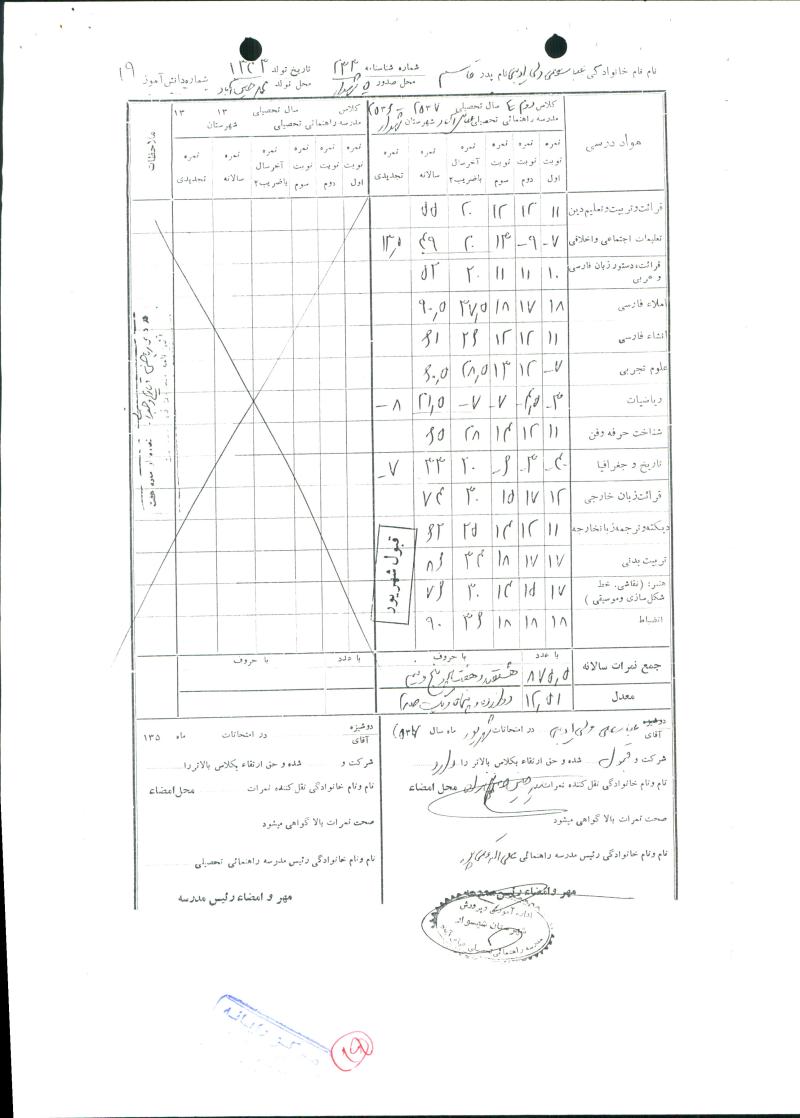 نام و نام خانوادگی نام پدر قاسم شماره شناسنامه ۲۳۳ تاریخ تولد ۱۳۴۳ شماره دانش‌آموز ۱۹
محل صدور ۵ شهسوار محل تولد
مواد درسی
کلاس دوم سال تحصیلی ۲۵۳۷
مدرسه راهنمائی تحصیلی شهرستان شهسوار
نمره نوبت اول نمره نوبت دوم نمره نوبت سوم نمره آخر سال باضریب ۲ نمره سالانه نمره تجدیدی
کلاس سال تحصیلی ۱۳ ۱۳
مدرسه راهنمائی تحصیلی شهرستان
نمره نوبت اول نمره نوبت دوم نمره نوبت سوم نمره آخر سال باضریب ۲ نمره سالانه نمره تجدیدی
ملاحظات
قرائت و تربیت و تعلیم دین ۱۱ ۱۲ ۱۲ ۲۰ ۵۵
تعلیمات اجتماعی و اخلاقی ۷- ۹- ۱۳ ۲۰ ۴۹ ۱۳,۵
قرائت، دستور زبان فارسی و عربی ۱۰ ۱۱ ۱۱ ۲۰ ۵۲
املاء فارسی ۱۸ ۱۷ ۱۸ ۳۷,۵ ۹۰,۵
انشاء فارسی ۱۱ ۱۲ ۱۲ ۲۶ ۶۱
علوم تجربی ۷- ۱۲ ۱۳ ۲۸,۵ ۶۰,۵
ریاضیات ۳- ۴,۵- ۷- ۷- ۲۱,۵ ۸-
شناخت حرفه و فن ۱۱ ۱۲ ۱۴ ۲۸ ۶۵
تاریخ و جغرافیا ۴- ۳- ۶- ۲۰ ۳۳ ۷-
قرائت زبان خارجی ۱۲ ۱۷ ۱۵ ۳۰ ۷۴
دیکته و ترجمه زبان خارجه ۱۱ ۱۲ ۱۴ ۲۵ ۶۲
تربیت بدنی ۱۷ ۱۷ ۱۸ ۳۴ ۸۶
هنر: (نقاشی. خط شکل‌سازی و موسیقی) ۱۷ ۱۵ ۱۴ ۳۰ ۷۶
انضباط ۱۸ ۱۸ ۱۸ ۳۶ ۹۰
قبول شهریور
با عدد با حروف با عدد با حروف
جمع نمرات سالانه ۸۷۵,۵ هشتصد و هفتاد و پنج و نیم
معدل ۱۲,۵۱ دوازده و پنجاه و یک صدم
دوشیزه آقای در امتحانات شهریور ماه سال
شرکت و قبول شده و حق ارتقاء بکلاس بالاتر را دارد
نام و نام خانوادگی نقل کننده نمرات محل امضاء
صحت نمرات بالا گواهی میشود
نام و نام خانوادگی رئیس مدرسه راهنمائی
مهر و امضاء رئیس مدرسه
اداره آموزش و پرورش
شهرستان شهسوار
مدرسه راهنمائی تحصیلی
دوشیزه آقای در امتحانات ماه ۱۳۵
شرکت و شده و حق ارتقاء بکلاس بالاتر را
نام و نام خانوادگی نقل کننده نمرات محل امضاء
صحت نمرات بالا گواهی میشود
نام و نام خانوادگی رئیس مدرسه راهنمائی تحصیلی
مهر و امضاء رئیس مدرسه
۱۹